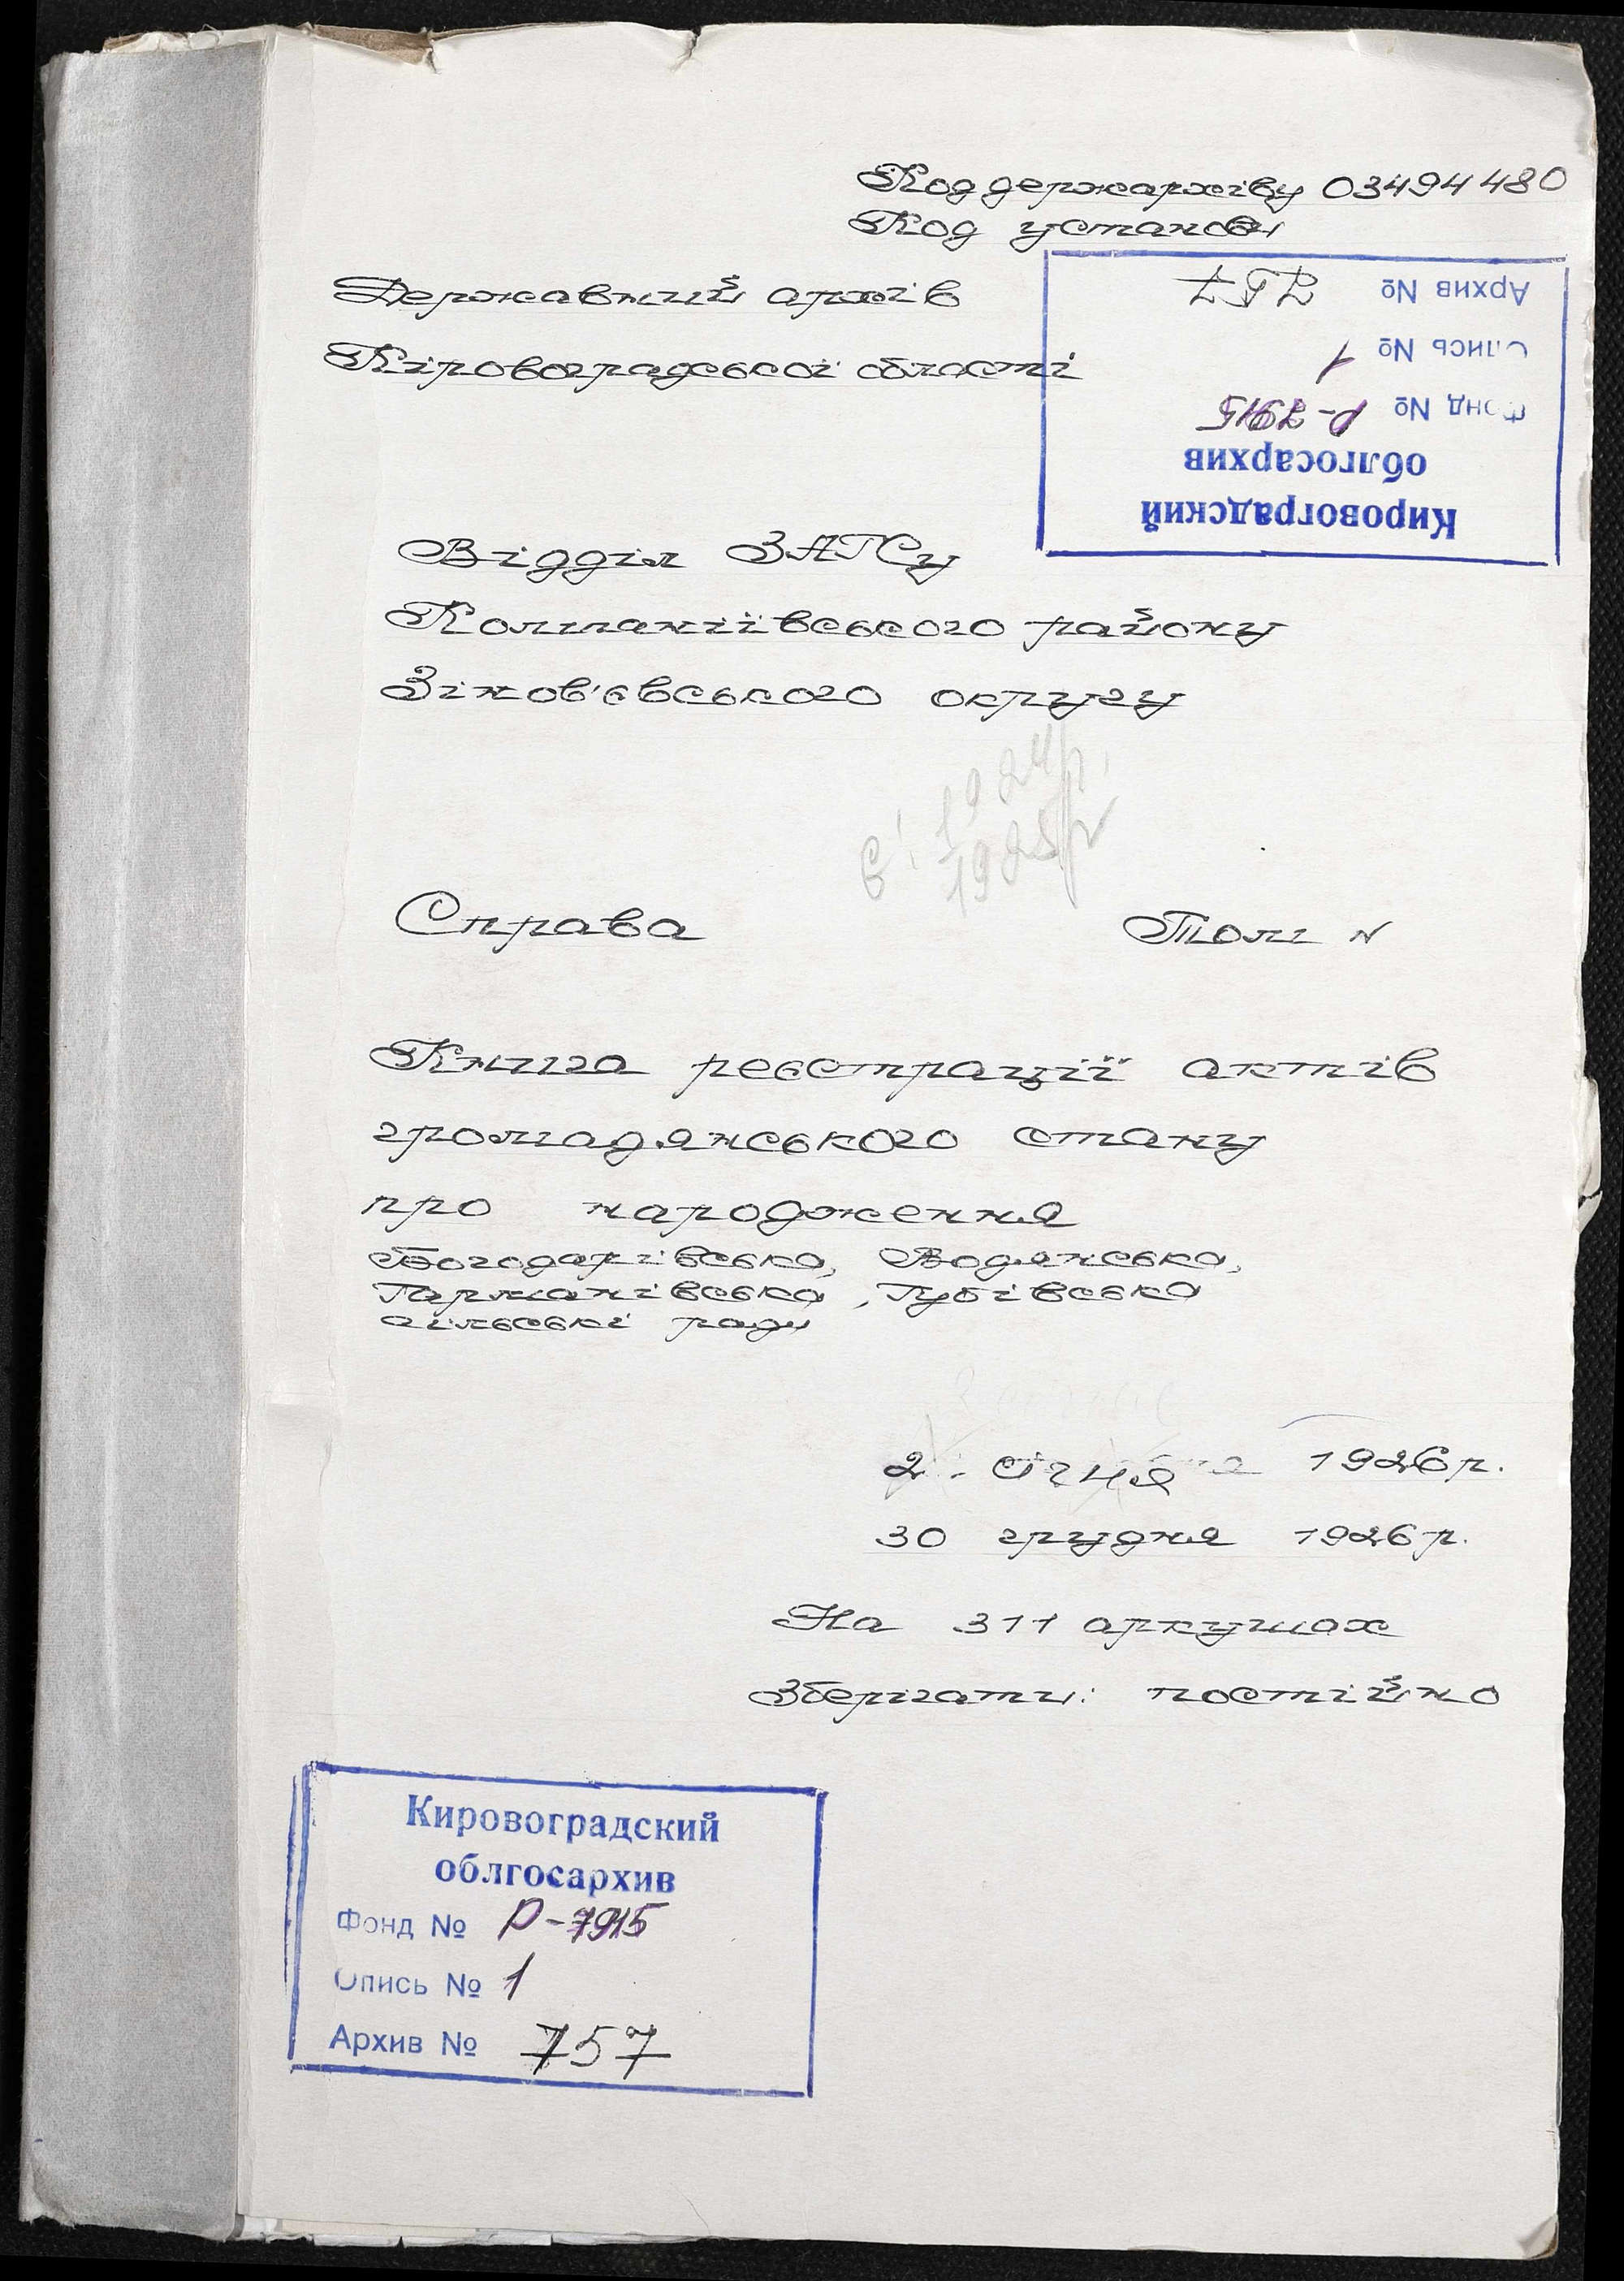 Код держархіву 03494480
Код установи
Державний архів
Кіровоградської області
Архив № 757
Опись № 1
Фонд № Р-7915
облгосархив
Кировоградский
Відділ ЗАГСу
Компаніївського району
Зінов'євського округу
Є: 1924р.
1925р
Справа Том №
Книга реєстрації актів
громадянського стану
про народження
Богодарівська, Водянська,
Гарманівська, Губівська
сільські ради
2 січня 1926р.
30 грудня 1926р.
На 311 аркушах
Зберігати: постійно
Кировоградский
облгосархив
Фонд № Р-7915
Опись № 1
Архив № 757